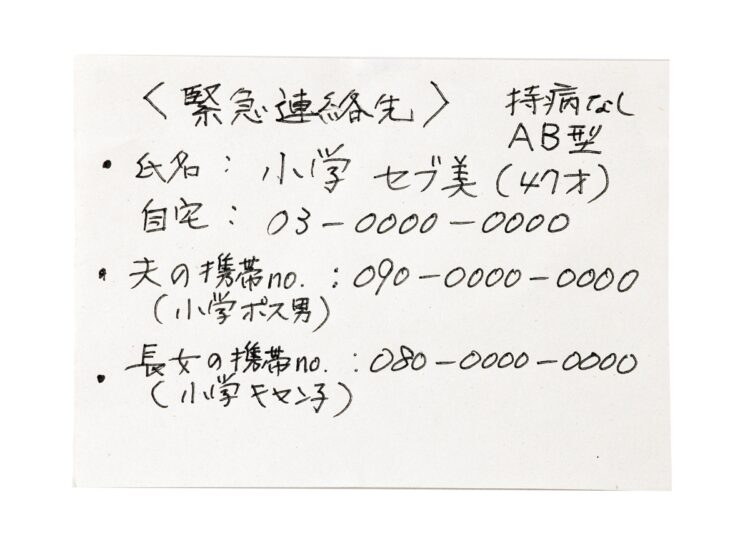 〈緊急連絡先〉
持病なし
AB型
• 氏名：小学 セブ美（47才）
自宅：03-0000-0000
• 夫の携帯no.：090-0000-0000
（小学ポス男）
• 長女の携帯no.：080-0000-0000
（小学キセン子）